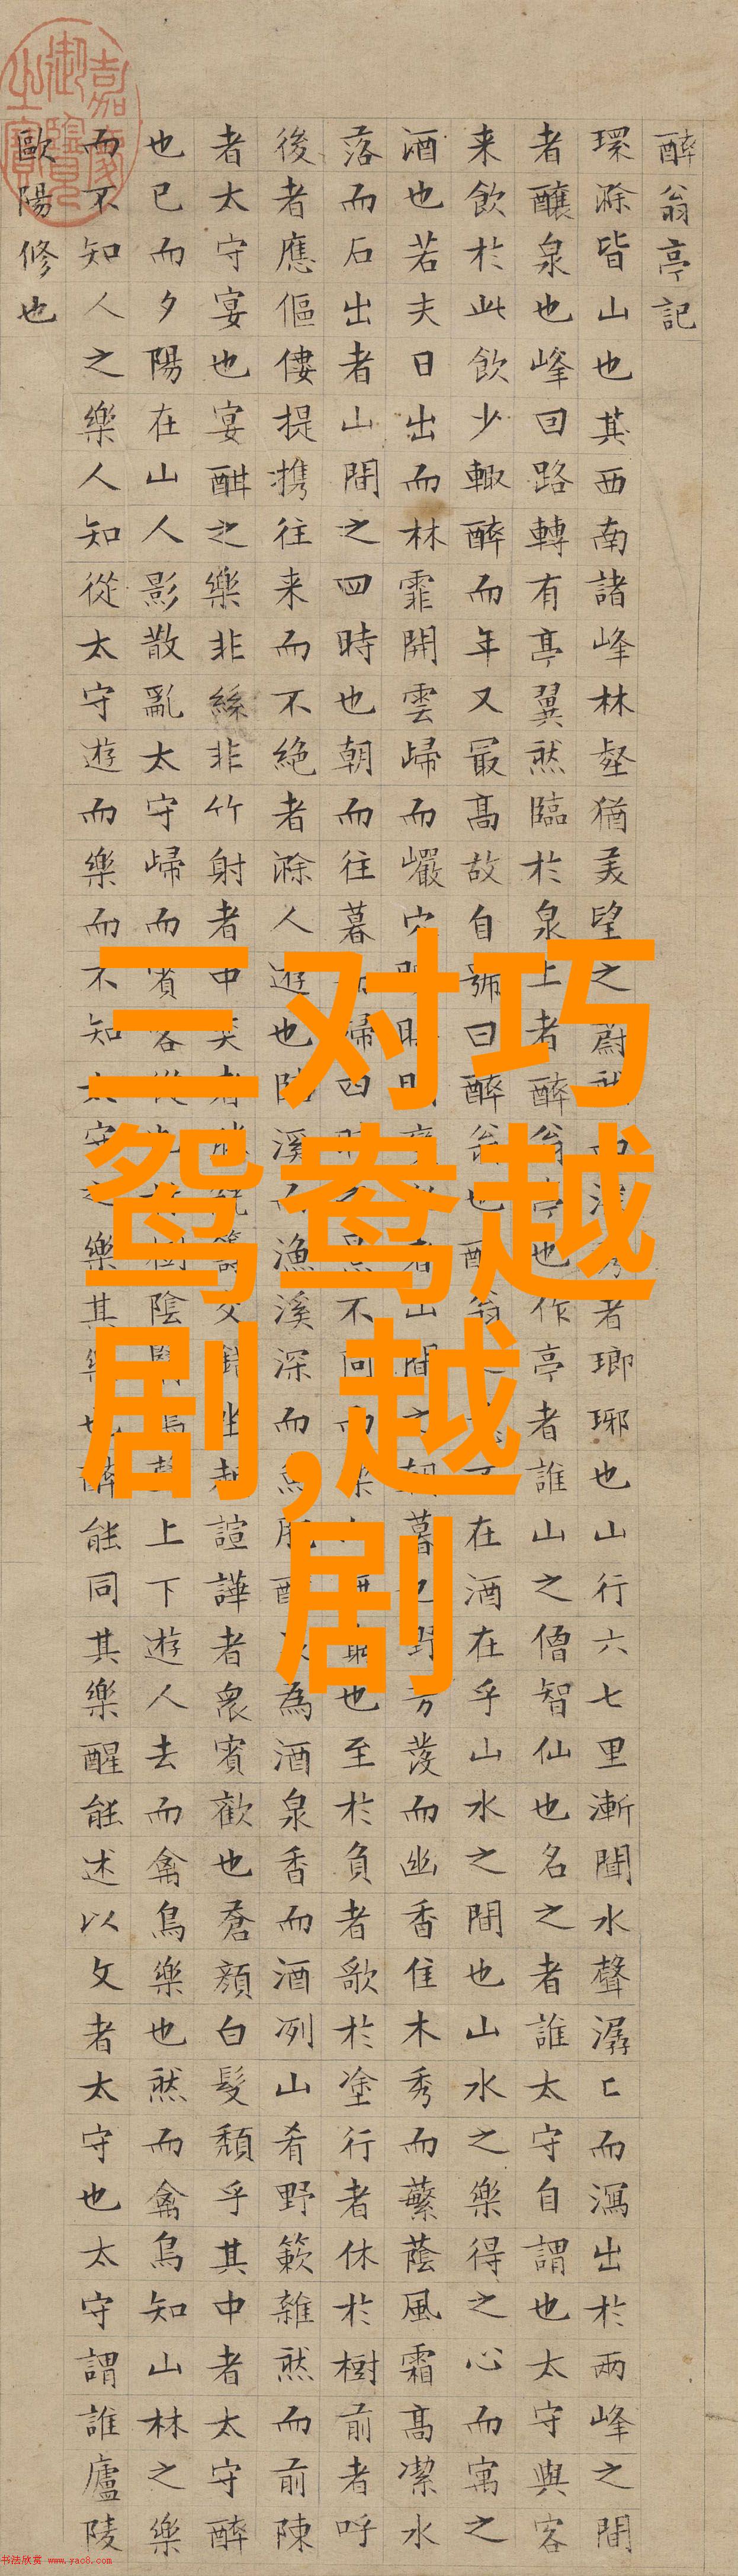 醉翁亭記
環滁皆山也其西南諸峰林壑猶美望之蔚而深者瑯琊也山行六七里漸聞水聲潺〻而瀉出於兩峰之間
者釀泉也峰回路轉有亭翼然臨於泉上者醉翁亭也作亭者誰山之僧智仙也名之者誰太守自謂也太守與客
来飲於此飲少輒醉而年又最高故自號曰醉翁也醉翁在酒在乎山水之間也山水之樂得之心而寓之
酒也若夫日出而林霏開雲歸而巖穴明者山間之朝暮也野芳發而幽香佳木秀而蘩蔭風霜高潔水
落而石出者山間之四時也朝而往暮而歸四時不同而樂也至於負者歌於塗行者休於樹前者呼
後者應傴僂提攜往来而不絕者滁人遊也臨溪而漁溪深而魚肥為酒泉香而酒冽山肴野蔌雜然而前陳
者太守宴也宴酣之樂非絲非竹射者中奕者籌交錯坐起諠譁者眾賓歡也蒼顏白髮頹乎其中者太守醉
也已而夕陽在山人影散亂太守歸而賓客從也樹陰上下遊人去而禽鳥樂也然而禽鳥知山林之樂
而不知人之樂人知從太守遊而樂而不知太守之樂其樂也醉能同其樂醒能述以文者太守也太守謂誰廬陵
歐陽修也
嘉慶御覽之寶
三对巧
鸳鸯越
剧,越
剧
书法欣赏 www.yac8.com